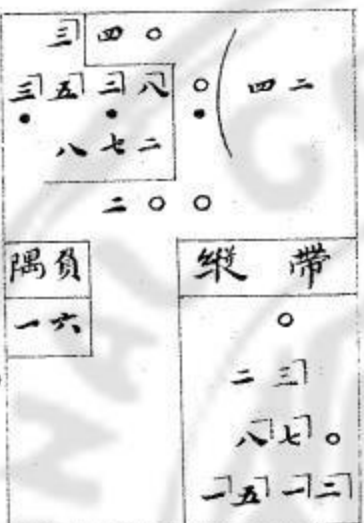 三四〇
三五三八〇四二
八七二
二〇〇
負隅
一六
帶縱
〇
二三
八七〇
一五一二